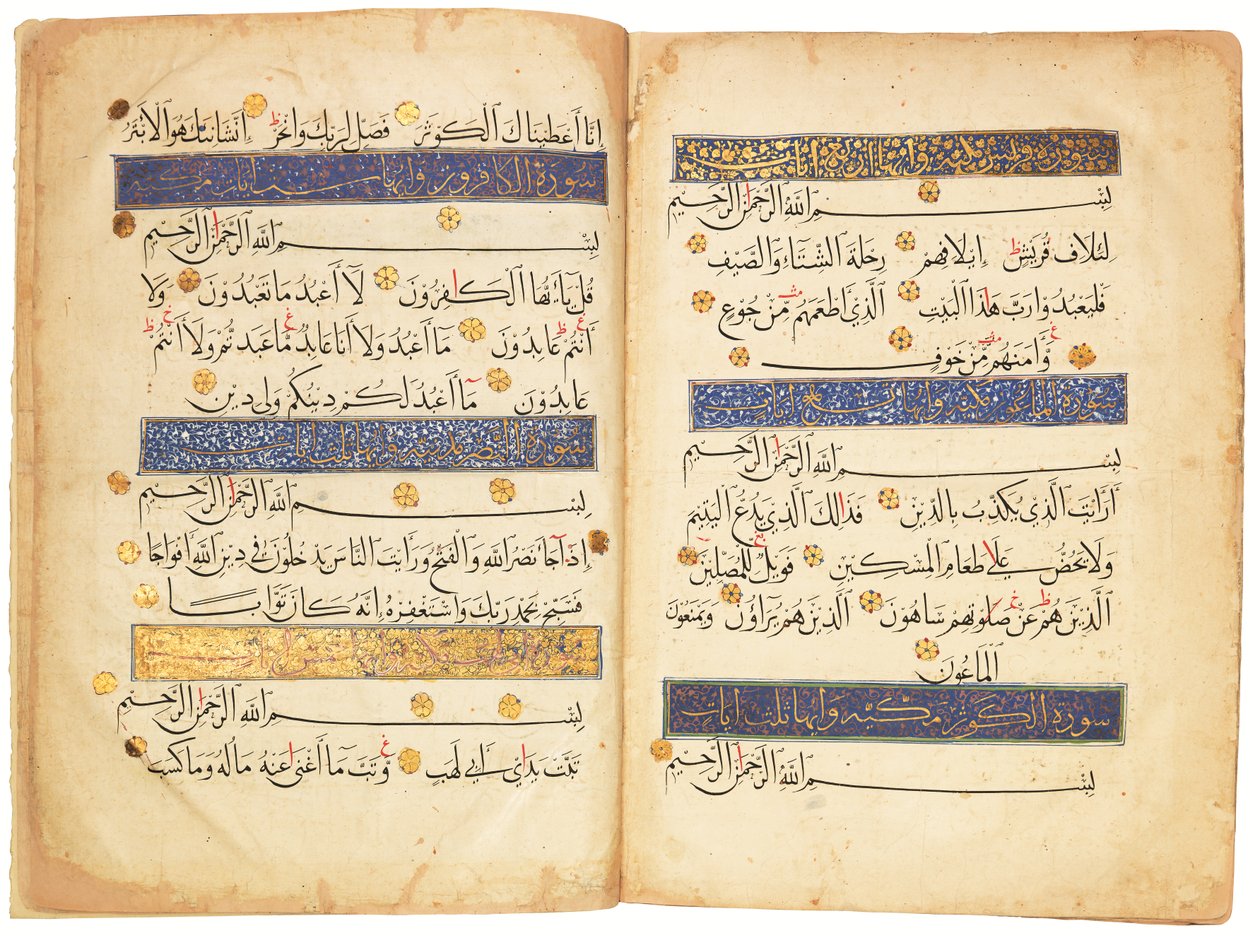 سورة قريش مكية وايها اربع ايات
بِسْمِ اللَّهِ الرَّحْمَٰنِ الرَّحِيمِ
لِئلَافِ قُرَيْشٍ اِيلَافِهِمْ رِحْلَةَ الشِّتَآءِ وَالصَّيْفِ
فَلْيَعْبُدُوا رَبَّ هَٰذَا الْبَيْتِ الَّذِي أَطْعَمَهُمْ مِّنْ جُوعٍ
وَّآمَنَهُمْ مِّنْ خَوْفٍ
سورة الماعون مكية وايها سبع ايات
بِسْمِ اللَّهِ الرَّحْمَٰنِ الرَّحِيمِ
أَرَأَيْتَ الَّذِي يُكَذِّبُ بِالدِّينِ فَذَٰلِكَ الَّذِي يَدُعُّ الْيَتِيمَ
وَلَا يَحُضُّ عَلَىٰ طَعَامِ الْمِسْكِينِ فَوَيْلٌ لِّلْمُصَلِّينَ
الَّذِينَ هُمْ عَنْ صَلَوٰتِهِمْ سَاهُونَ الَّذِينَ هُمْ يُرَآؤُنَ وَيَمْنَعُونَ
الْمَاعُونَ
سورة الكوثر مكية وايها ثلث ايات
بِسْمِ اللَّهِ الرَّحْمَٰنِ الرَّحِيمِ
اِنَّا أَعْطَيْنَاكَ الْكَوْثَرَ فَصَلِّ لِرَبِّكَ وَانْحَرْ اِنَّ شَانِئَكَ هُوَ الْأَبْتَرُ
سورة الكافرون وايها ست ايات مكية
بِسْمِ اللَّهِ الرَّحْمَٰنِ الرَّحِيمِ
قُلْ يَآ أَيُّهَا الْكَٰفِرُونَ لَآ أَعْبُدُ مَا تَعْبُدُونَ وَلَا
أَنْتُمْ عَابِدُونَ مَآ أَعْبُدُ وَلَا أَنَا عَابِدٌ مَّا عَبَدتُّمْ وَلَا أَنْتُمْ
عَابِدُونَ مَآ أَعْبُدُ لَكُمْ دِينُكُمْ وَلِيَ دِينِ
سورة النصر مدنية وايها ثلث ايات
بِسْمِ اللَّهِ الرَّحْمَٰنِ الرَّحِيمِ
اِذَا جَآءَ نَصْرُ اللَّهِ وَالْفَتْحُ وَرَأَيْتَ النَّاسَ يَدْخُلُونَ فِي دِينِ اللَّهِ أَفْوَاجًا
فَسَبِّحْ بِحَمْدِ رَبِّكَ وَاسْتَغْفِرْهُ اِنَّهُ كَانَ تَوَّابًا
بِسْمِ اللَّهِ الرَّحْمَٰنِ الرَّحِيمِ
تَبَّتْ يَدَآ أَبِي لَهَبٍ وَّتَبَّ مَآ أَغْنَىٰ عَنْهُ مَالُهُ وَمَا كَسَبَ